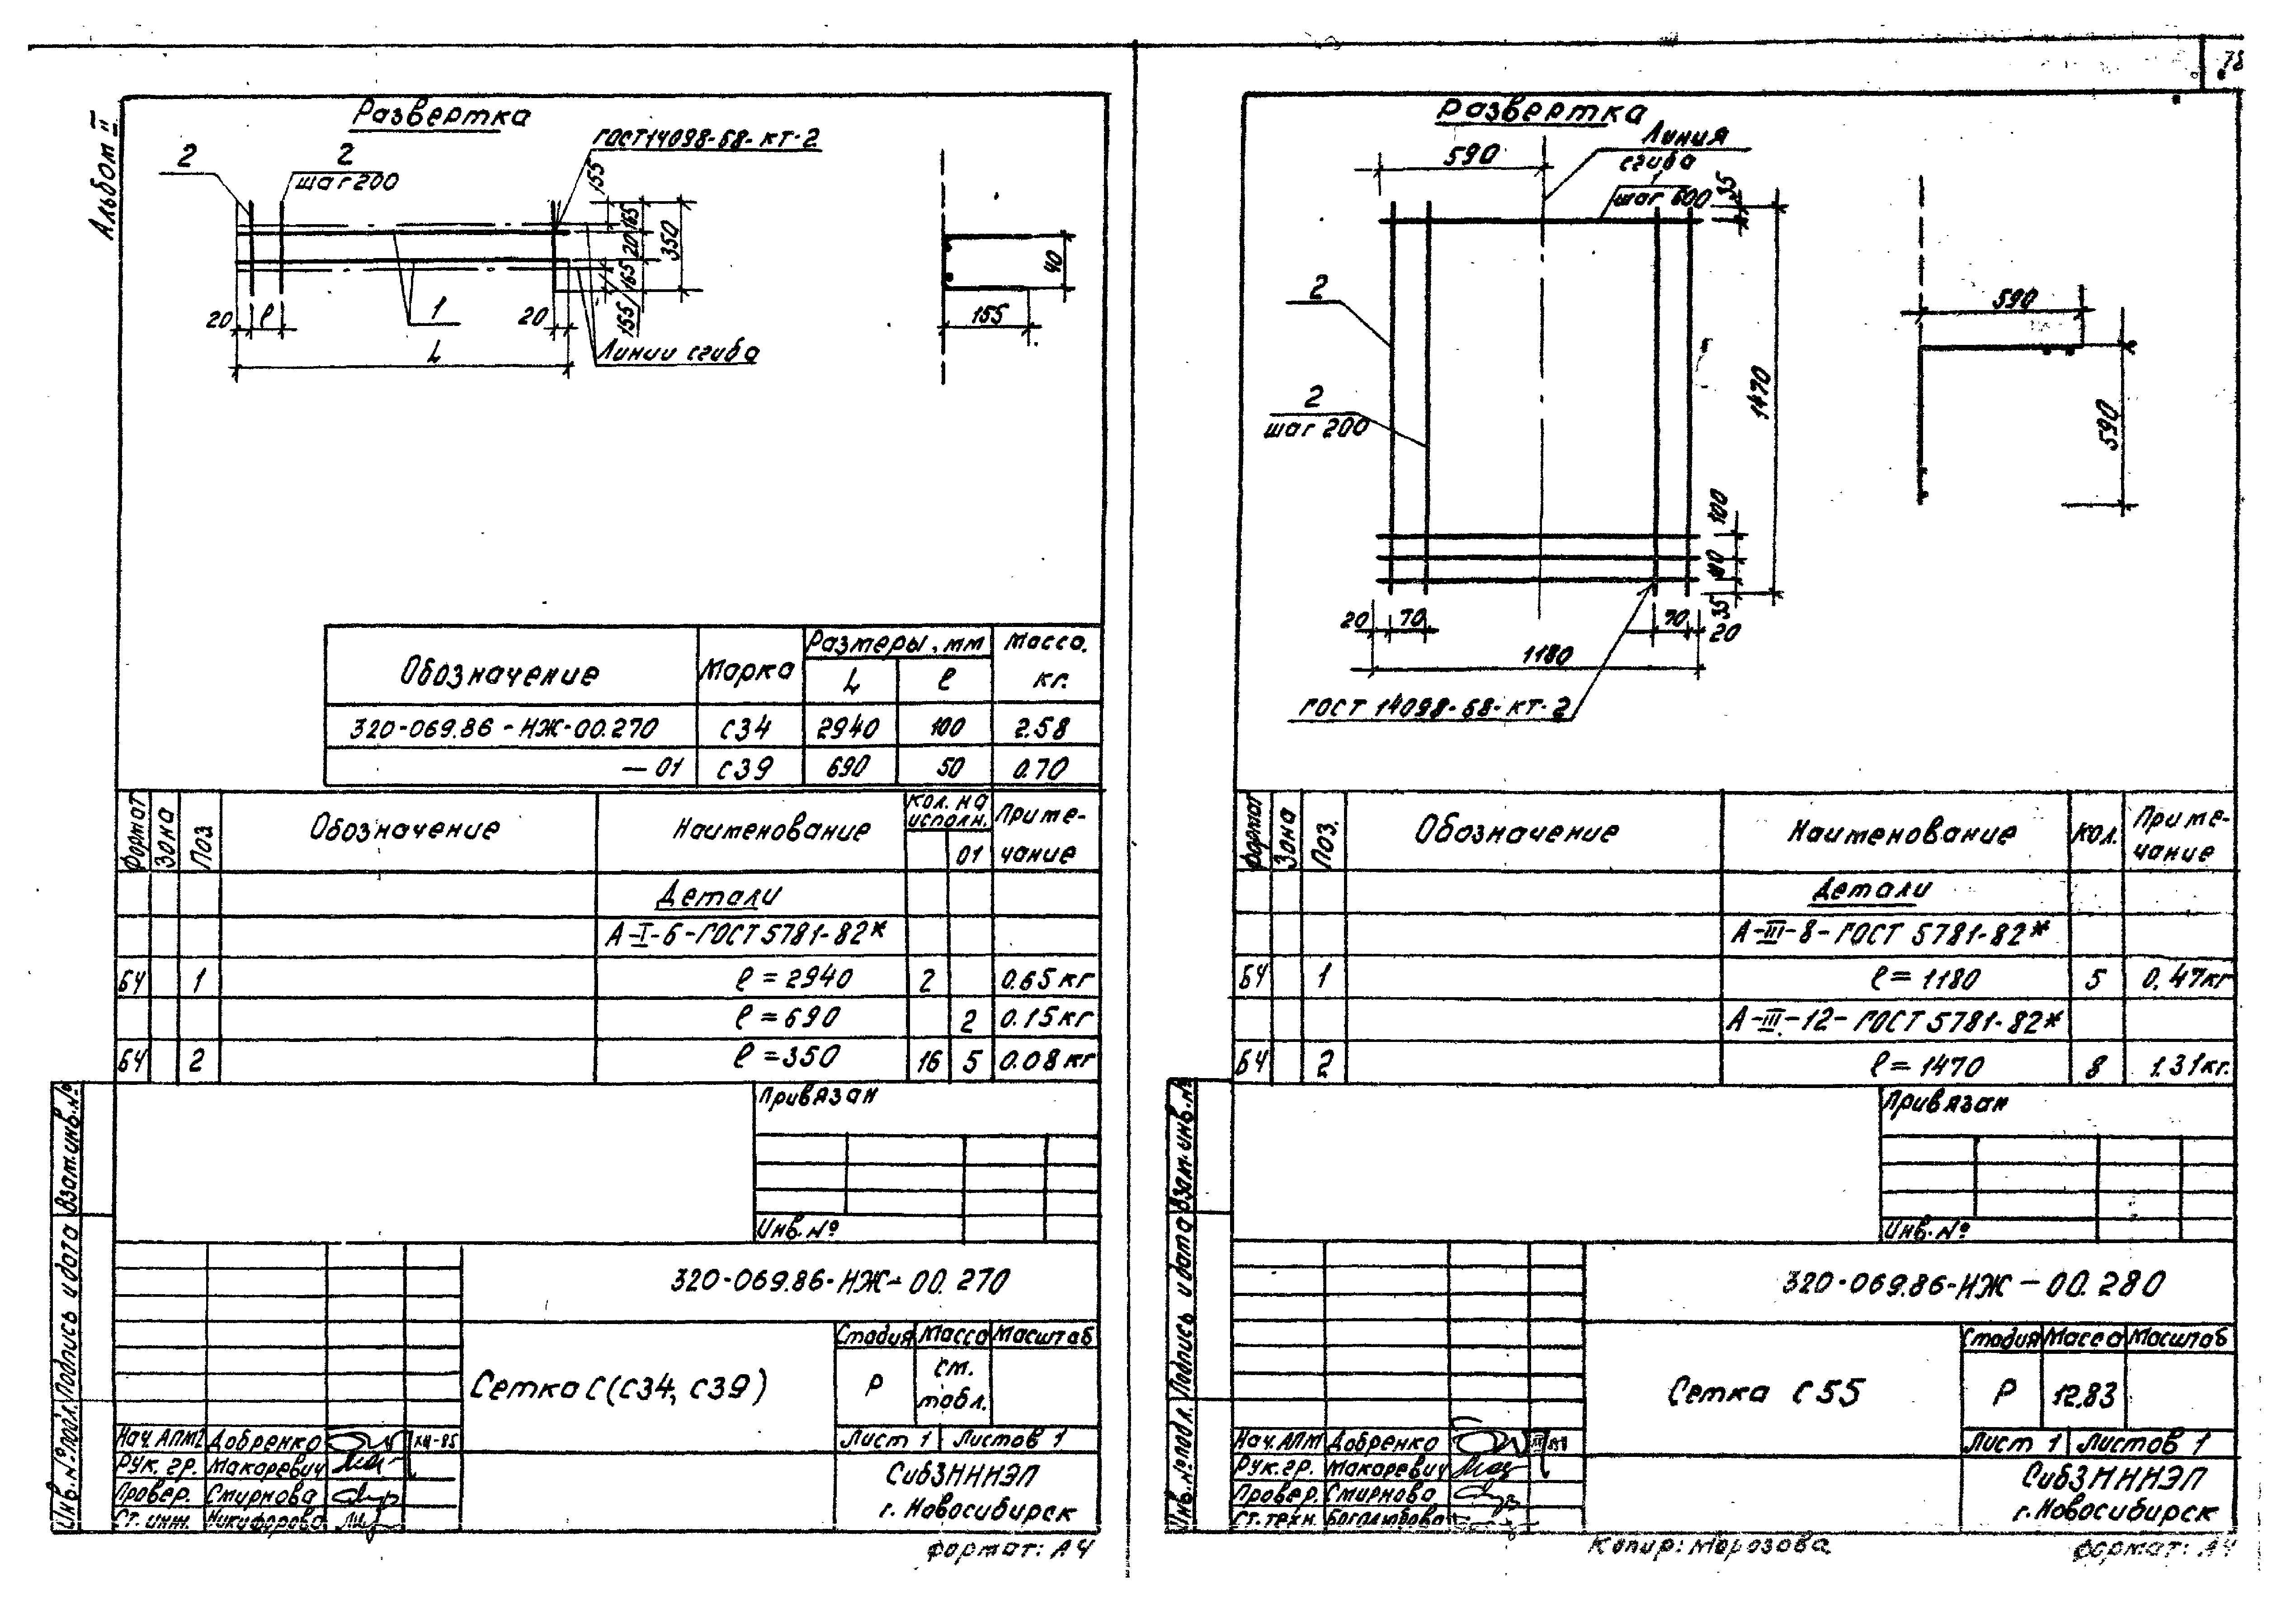 78
Альбом II
Развертка
2
2
шаг 200
ГОСТ 14098-68-КТ-2
155
165
20
165
350
155
20
l
1
20
L
Линии сгиба
40
155
Обозначение
Марка
Размеры, мм
Масса, кг.
L
l
320-069.86-НЖ-00.270 С34 2940 100 2.58
—01 С39 690 50 0.70
Формат
Зона
Поз
Обозначение
Наименование
Кол. на исполн.
01
Приме-
чание
Детали
А-I-6-ГОСТ 5781-82*
БЧ 1 l = 2940 2 0.65кг
l = 690 2 0.15кг
БЧ 2 l = 350 16 5 0.08кг
Привязан
Инв.№
Взам.инв.№
Подпись и дата
Инв.№ подл.
320-069.86-НЖ-00.270
Сетка С(С34, С39)
Стадия Масса Масштаб
Р
см.
табл.
Лист 1 Листов 1
СибЗНИИЭП
г.Новосибирск
Нач.АПМ2 Добренко XII-85
Рук. гр. Макаревич
Провер. Смирнова
Ст. инж. Никифорова
Формат: А4
Развертка
590
Линия
сгиба
1
шаг 600
35
2
2
шаг 200
1470
100
110
35
20
70
70
20
1180
ГОСТ 14098-68-КТ-2
590
590
Формат
Зона
Поз.
Обозначение
Наименование
Кол.
Приме-
чание
Детали
А-III-8-ГОСТ 5781-82*
БЧ 1 l = 1180 5 0.47кг
А-III-12-ГОСТ 5781-82*
БЧ 2 l = 1470 8 1.31кг.
Привязан
Инв.№
Взам.инв.№
Подпись и дата
Инв.№ подл.
320-069.86-НЖ-00.280
Сетка С55
Стадия Масса Масштаб
Р 12.83
Лист 1 Листов 1
СибЗНИИЭП
г.Новосибирск
Нач.АПМ Добренко
Рук.гр. Макаревич
Провер. Смирнова
Ст.техн. Боголюбова
Копир: Морозова
Формат: А4